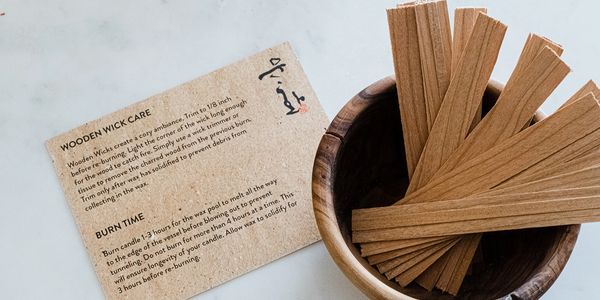 WOODEN WICK CARE
Wooden Wicks create a cozy ambiance. Trim to 1/8 inch
before re-burning. Light the corner of the wick long enough
for the wood to catch fire. Simply use a wick trimmer or
tissue to remove the charred wood from the previous burn.
Trim only after wax has solidified to prevent debris from
collecting in the wax.
BURN TIME
Burn candle 1-3 hours for the wax pool to melt all the way
to the edge of the vessel before blowing out to prevent
tunneling. Do not burn for more than 4 hours at a time. This
will ensure longevity of your candle. Allow wax to solidify for
3 hours before re-burning.